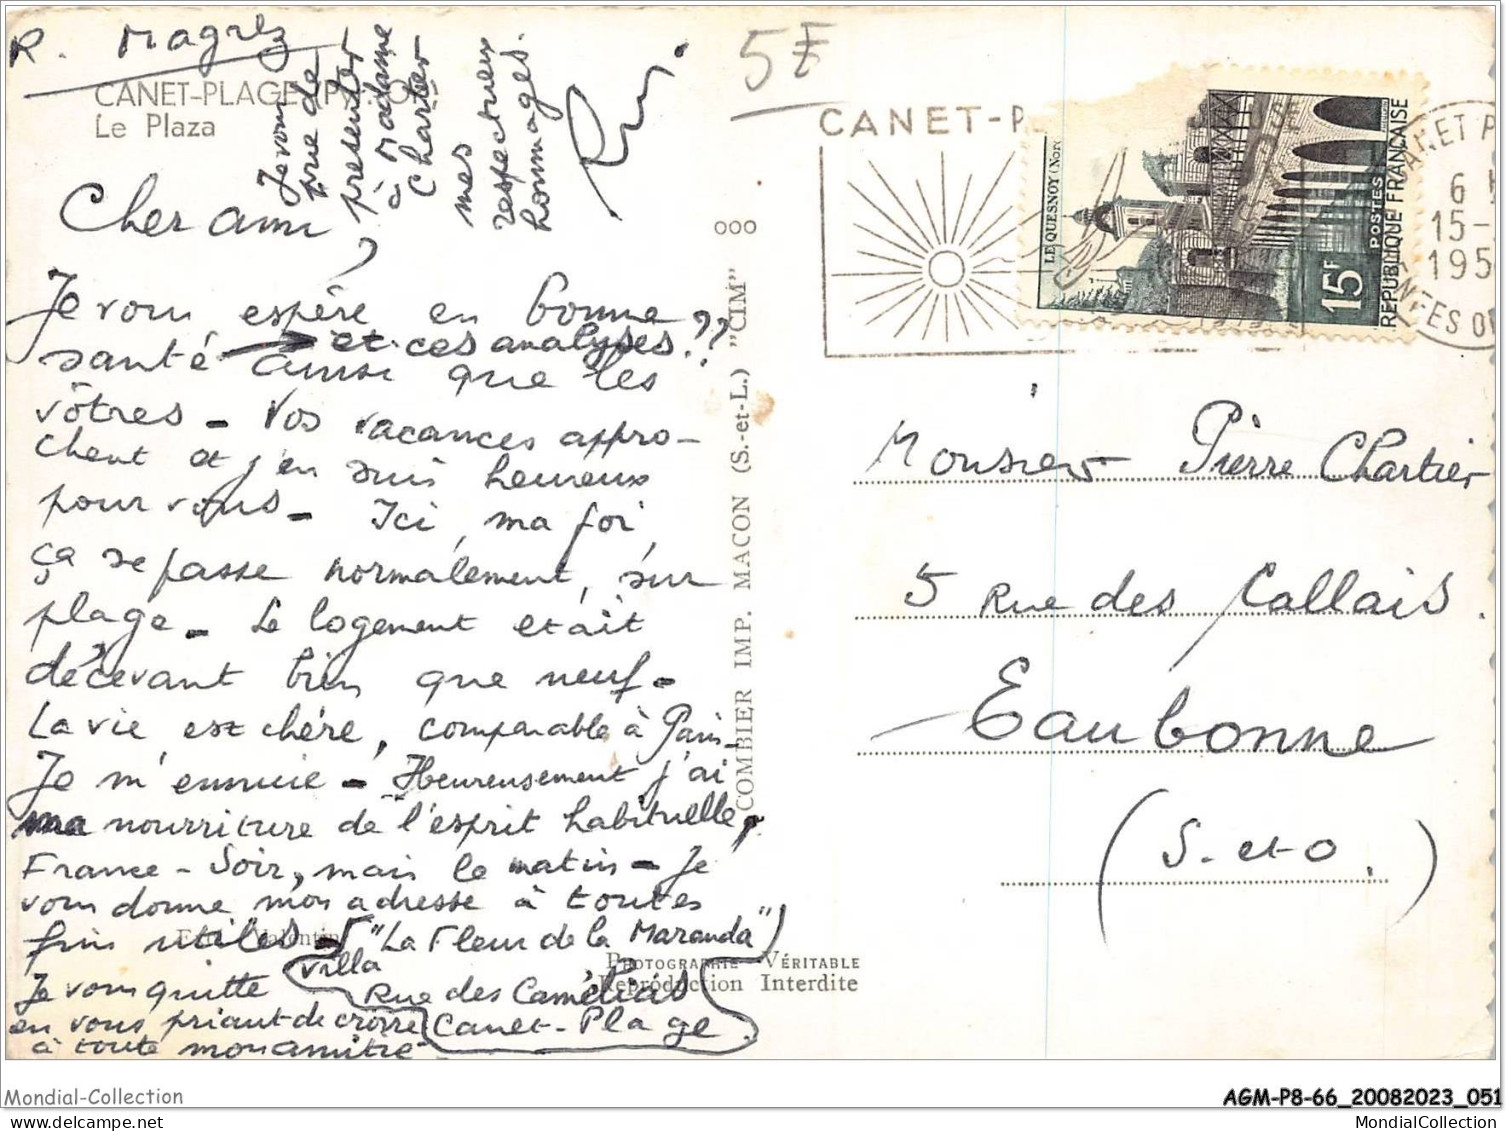 R. Magrez
CANET-PLAGE
Le Plaza
Cher ami,
Je vous espère en bonne
et ces analyses ??
santé ainsi que les
vôtres - Vos vacances appro-
chent et j'en suis heureux
pour vous - Ici, ma foi,
ça se passe normalement, sur
plage - Le logement était
décevant bien que neuf -
La vie est chère, comparable à Paris -
Je m'ennuie - Heureusement j'ai
ma nourriture de l'esprit habituelle,
France-Soir, mais le matin - Je
vous donne mon adresse à toutes
fins utiles -
Villa "La Fleur de la Maranda"
Rue des Camélias
Canet-Plage.
Je vous quitte
en vous priant de croire
à toute mon amitié
Je vous
prie de
présenter
à Madame
Chartier
mes
respectueux
hommages.
ooo
COMBIER IMP. MACON (S.-et-L.) "CIM"
PHOTOGRAPHIE VÉRITABLE
Reproduction Interdite
5F
CANET-P
LE QUESNOY (Nord
15F
POSTES
REPUBLIQUE FRANÇAISE
CANET P
6 H
15-
195
Monsieur Pierre Chartier
5 Rue des Callais.
Eaubonne
(S.-et-O.)
Mondial-Collection
AGM-P8-66_20082023_051
MondialCollection